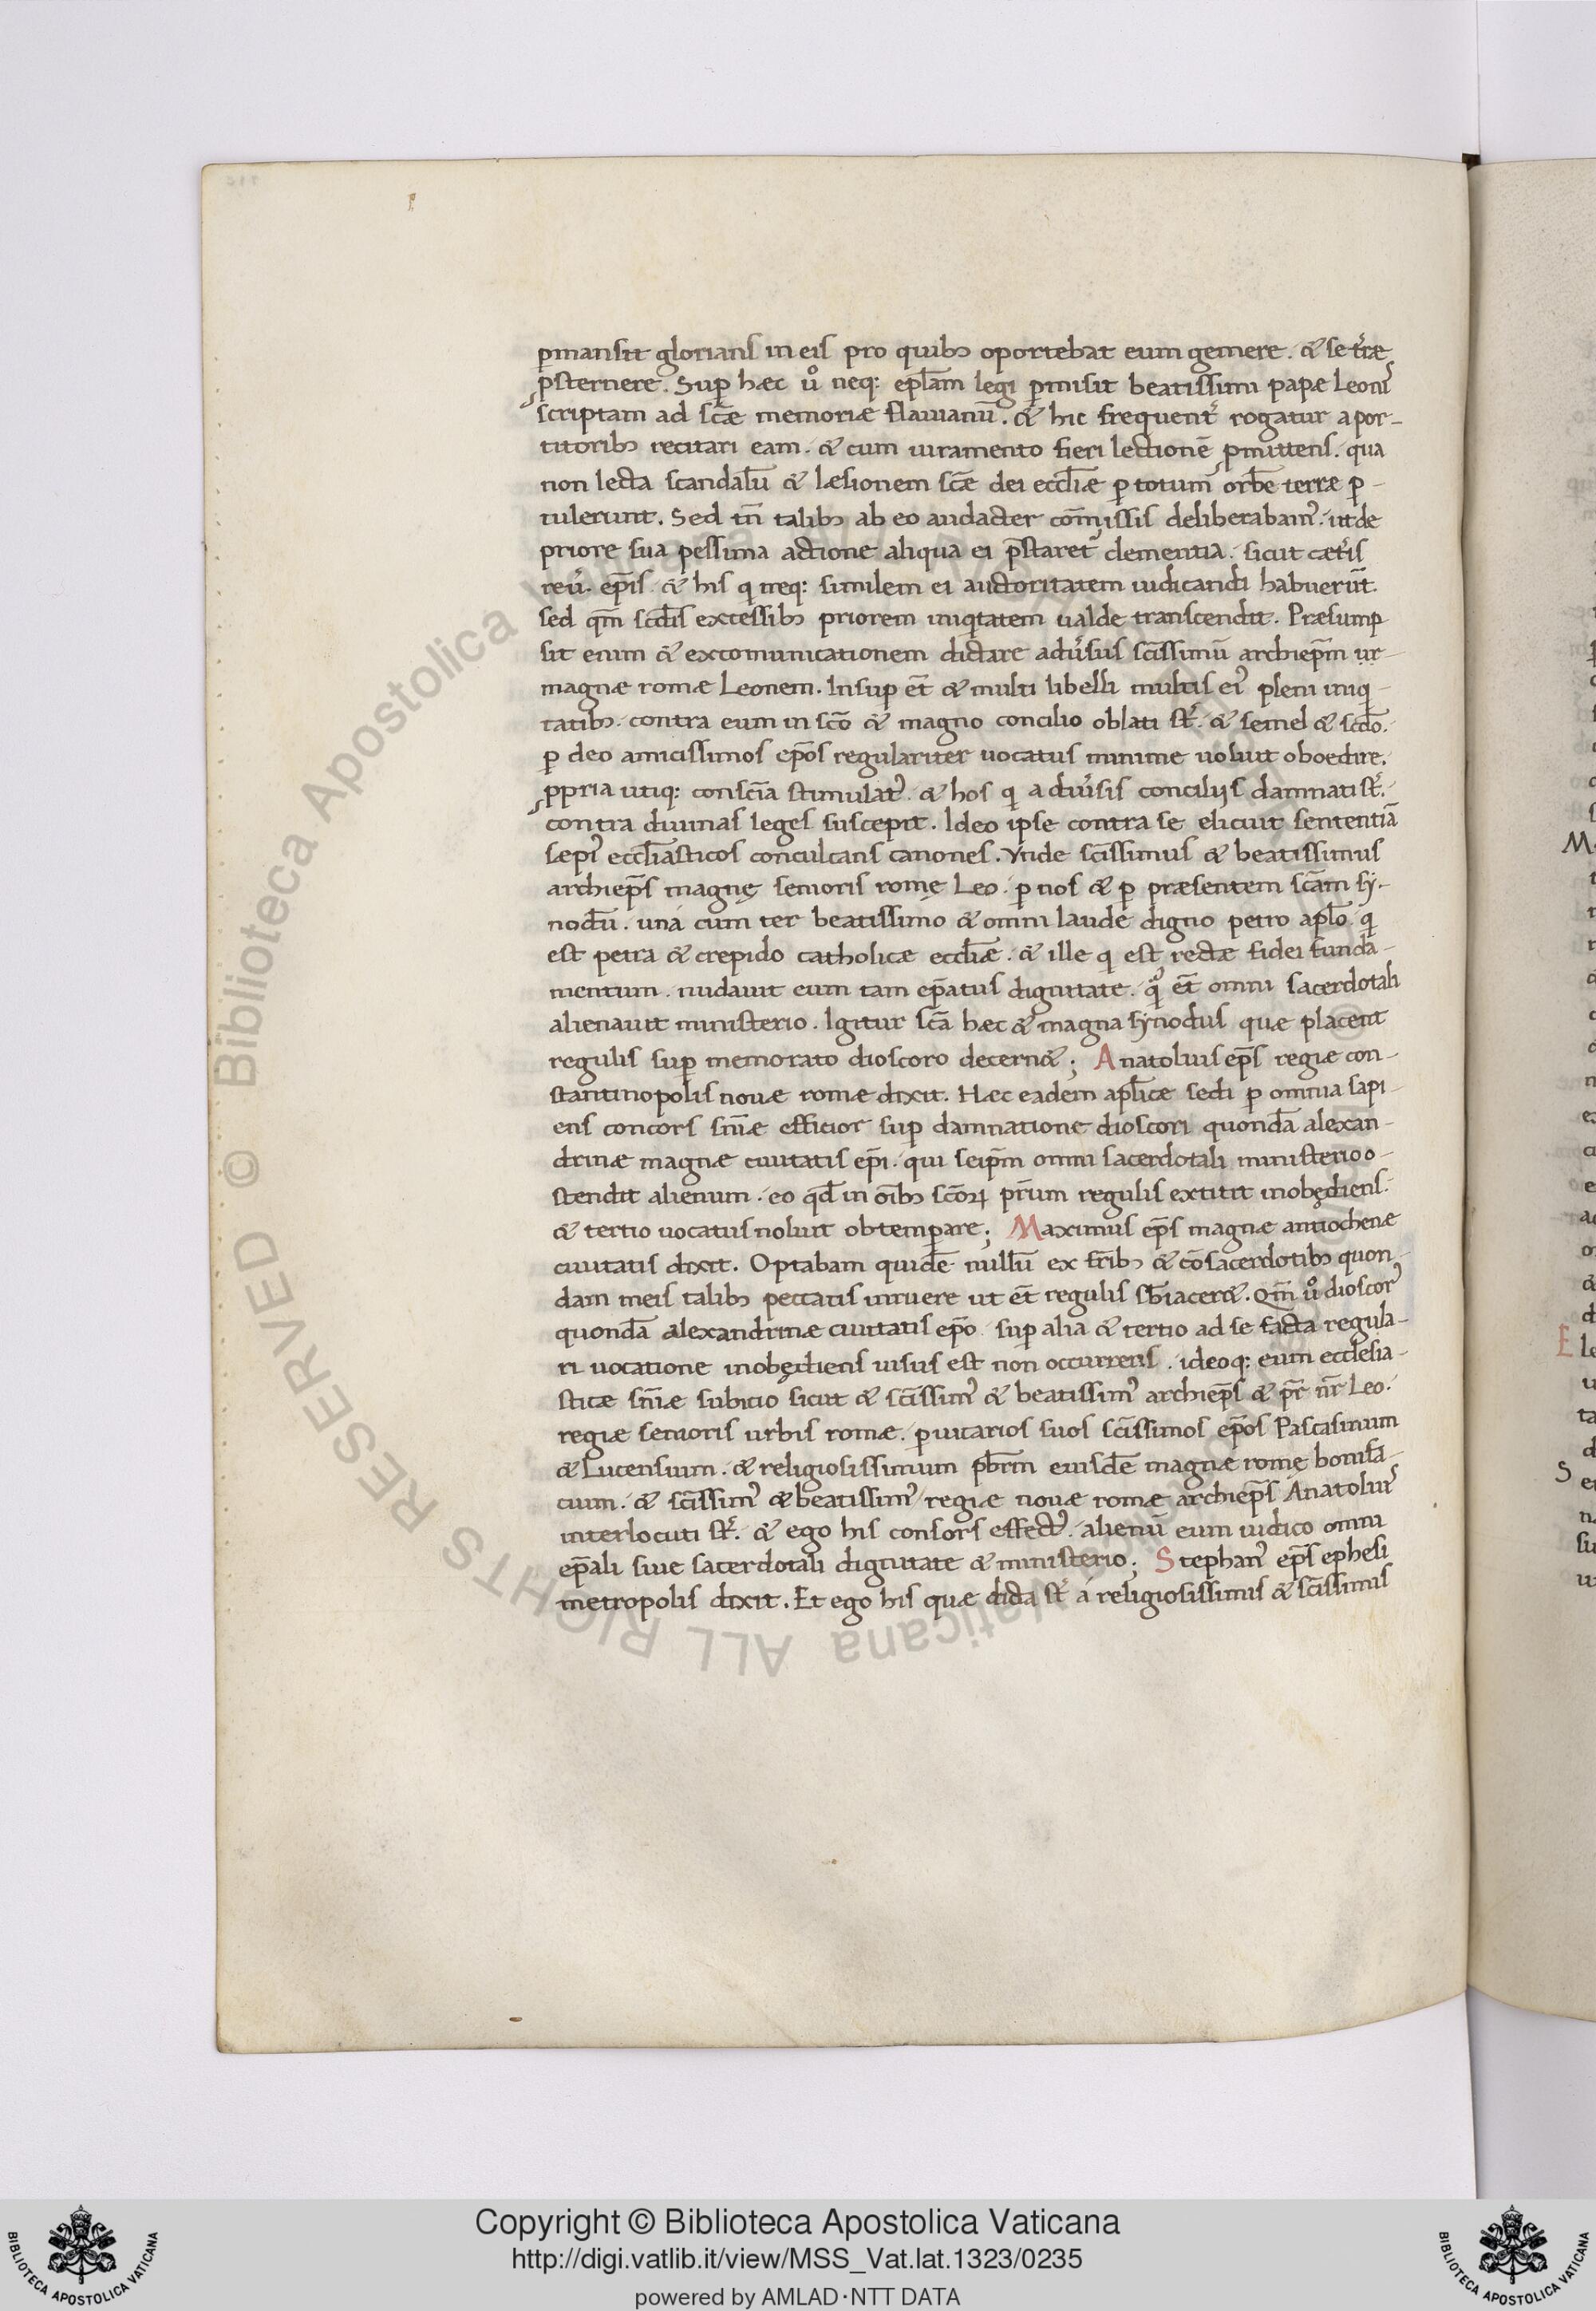 ꝑmansit glorians in eis pro quibꝫ oportebat eum gemere. & se t̃ræ
ꝓsternere. Suꝑ hæc ůo neq: epl̃am legi ꝑmisit beatissimi papæ Leonis
scriptam ad scæ̃ memoriæ flauianũ. & hic frequent̃ rogatur a por-
titoribꝫ recitari eam. & cum iuramento fieri lectionẽ ꝓmittens. qua
non lecta scandalũ & læsionem scæ̃ dei eccl̃iæ ꝑ totum orbẽ terræ ꝑ-
tulerunt. Sed tñ talibꝫ ab eo audacter cõmissis deliberabam᾽. ut de
priore sua pessima actione aliqua ei p̃staret᾽ clementia. sicut cæt̃is
reu᾽. ep̃is. & his q neq: similem ei auctoritatem iudicandi habuerũt.
sed qm̃ scd̃is excessibꝫ priorem iniqtatem ualde transcendit. Præsump
sit enim & excomunicationem dictare adu᾽sus sc̃issimũ archiep̃m ur-
magnæ romæ Leonem. Insuꝑ et̃ & multi libelli multis ei᾽ pleni iniq-
tatibꝫ. contra eum in scõ & magno concilio oblati st᾽. & semel & scd̃o.
ꝑ deo amicissimos ep̃os regulariter uocatus minime uoluit oboedire.
ꝓpria utiq: consciã stimulat᾽. & hos q adu᾽sis concilijs damnati st᾽.
contra diuinas leges suscepit. Ideo ipse contra se elicuit sententiã
sæpi᾽ eccl̃iasticos conculcans canones. Vnde sc̃issimus & beatissimus
archiep̃s magnę senioris romę Leo. ꝑ nos & ꝑ præsentem scãm sy-
nodũ. una cum ter beatissimo & omni laude digno petro apl̃o. q
est petra & crepido catholicæ eccl̃iæ. & ille q est rectæ fidei funda-
mentum. nudauit eum tam ep̃atus dignitate. q̃ et̃ omni sacerdotali
alienauit ministerio. Igitur scã hæc & magna synodus quæ placent
regulis suꝑ memorato dioscoro decern&; Anatolius ep̃s regiæ con-
stantinopolis nouæ romæ dixit. Hæc eadem apl̃icæ sedi ꝑ omnia sapi-
ens concors sñiæ efficior suꝑ damnatione dioscori quondã alexan-
drinæ magnæ ciuitatis ep̃i. qui seip̃m omni sacerdotali ministerio o-
stendit alienum. eo qd̃ in oĩbꝫ scõꝝ pr̃um regulis extitit inobędiens.
& tertio uocatus noluit obtemꝑare; Maximus ep̃s magnæ antiochenæ
ciuitatis dixit. Optabam quidẽ nullũ ex fr̃ibꝫ & cõsacerdotibꝫ quon-
dam meis talibꝫ peccatis inruere ut et̃ regulis sb̃iacer&. Qm̃ ůo dioscor᾽
quondã alexandrinæ ciuitatis ep̃o. suꝑ alia & tertio ad se facta regula-
ri uocatione inobędiens uisus est non occurrens. ideoq: eum ecclesia-
sticæ sñiæ subicio sicut & sc̃issim᾽ & beatissim᾽ archiep̃s & pr̃ nr̃ Leo.
regiæ senioris urbis romæ. ꝑ uicarios suos sc̃issimos ep̃os Pascasinum
& Lucensium. & religiosissimum pb̃rm eiusdẽ magnæ romę bonifa-
cium. & sc̃issim᾽ & beatissim᾽ regiæ nouæ romæ archiep̃s Anatolius
interlocuti st᾽. & ego his consors effect᾽. alienũ eum iudico omni
ep̃ali siue sacerdotali dignitate & ministerio; Stephan᾽ ep̃s ephesi
metropolis dixit. Et ego his quæ dicta st᾽ á religiosissimis & sc̃issimis
Copyright © Biblioteca Apostolica Vaticana
http://digi.vatlib.it/view/MSS_Vat.lat.1323/0235
powered by AMLAD·NTT DATA